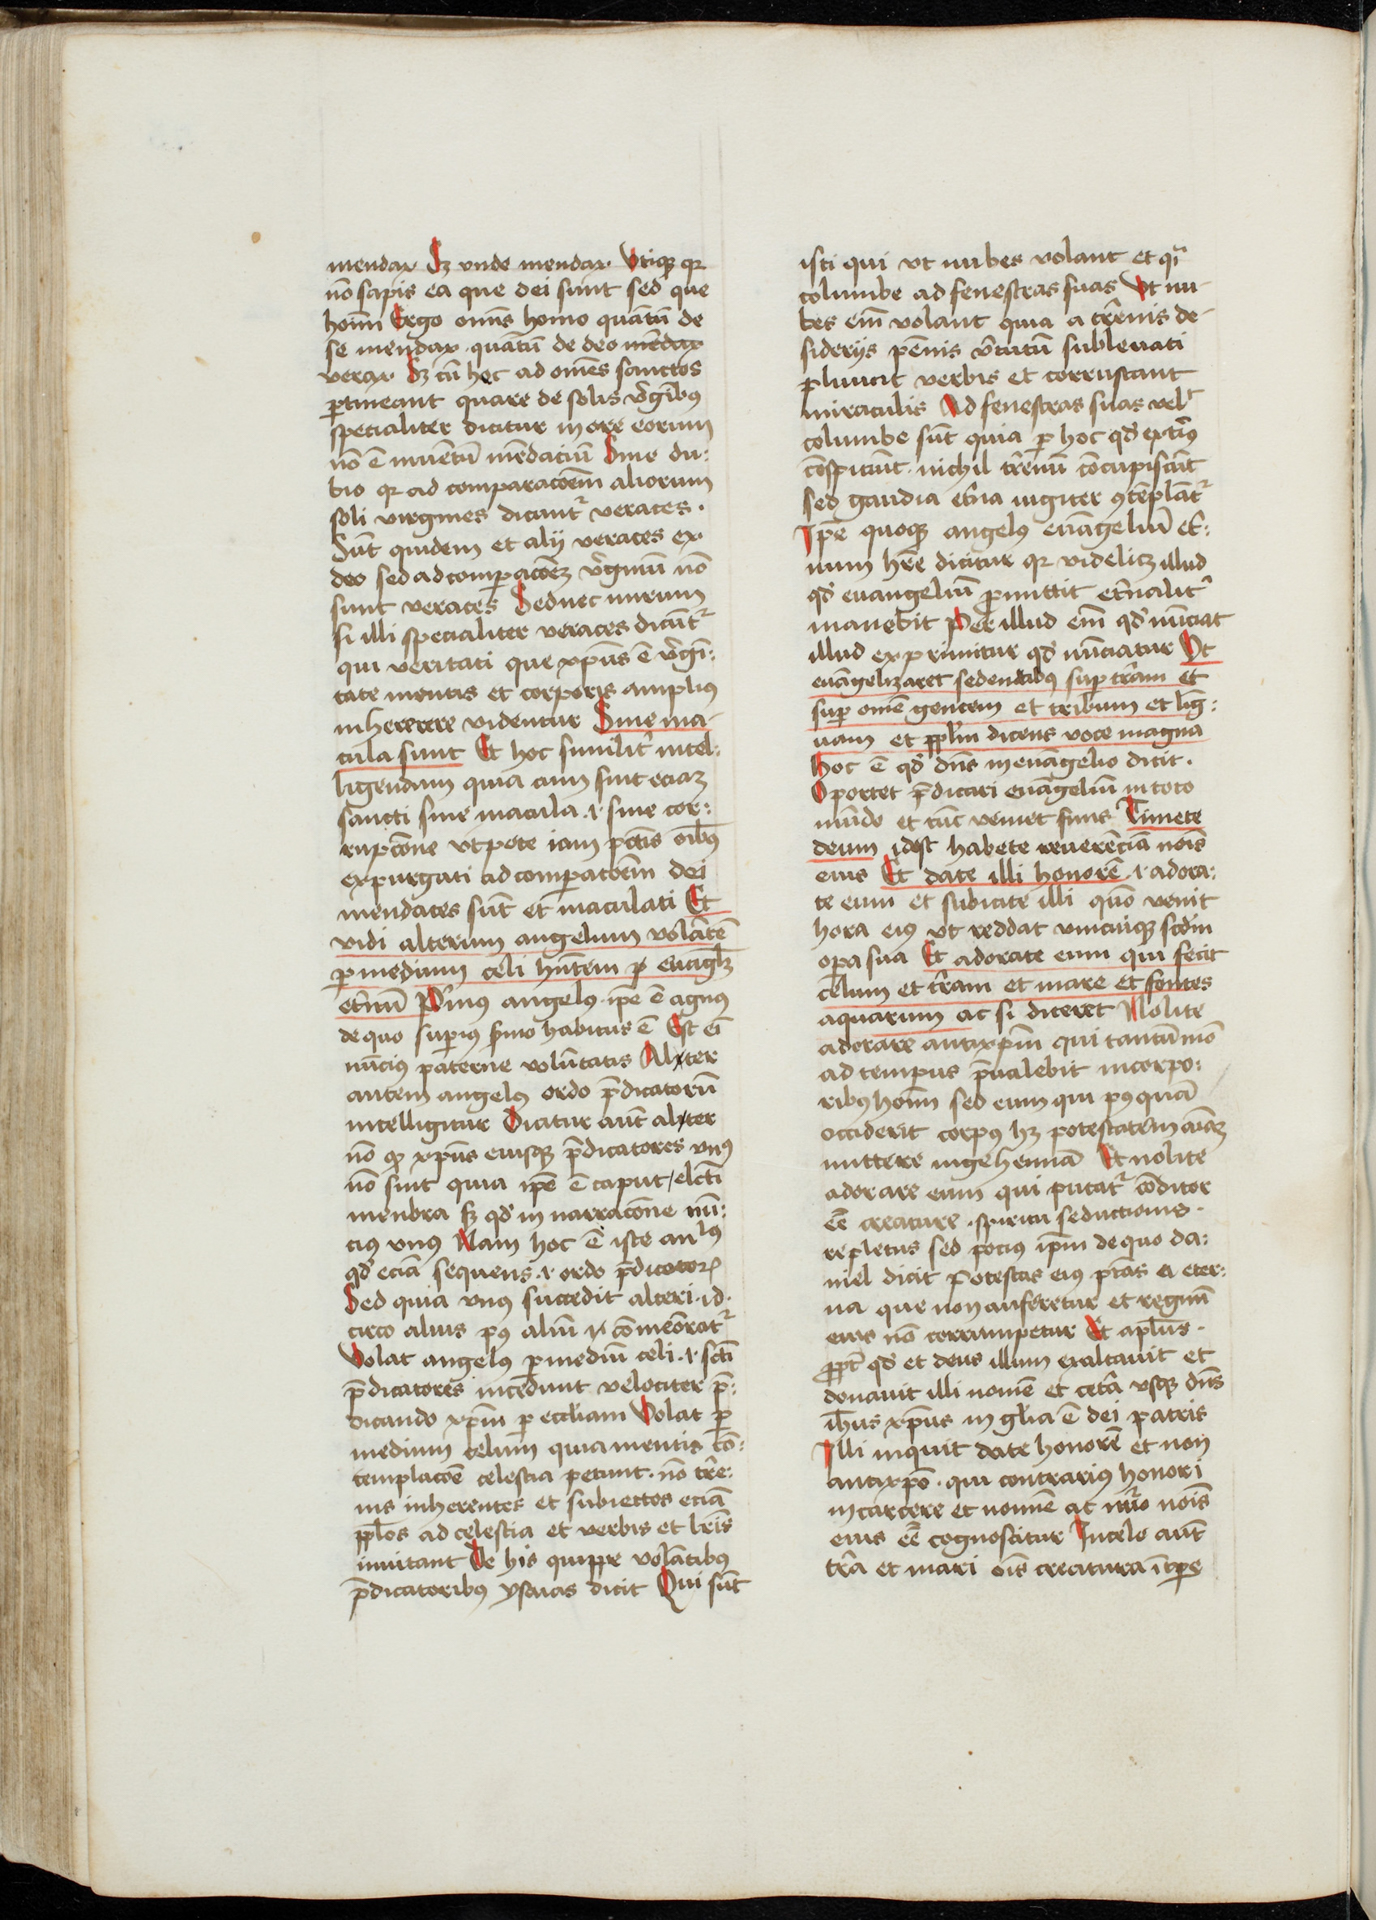 mendax Sz vnde mendax. Vtiqz qr
nō sapis ea que dei sunt sed que
hoīm Ergo omīs homo quātū de
se mendax. quātū de deo mēdax
verax Sz cū hoc ad omēs sanctos
ꝑtineant quare de solis v̓gībꝰ
specialiter dicitur in ore eorum
nō ē inuentū mēdaciū Sine du:
bio qr ad comparacōem aliorum
soli virgines dicant᷑ veraces.
Sūt quidem et alij veraces ex
deo sed ad comꝑacōēz v̓gīnū nō
sunt veraces Sed nec mirum
si illi specialiter veraces dicūt᷑
qui veritati que xp̄us ē v̓gī:
tate mentis et corporis ampliꝰ
inhererere videntur Sine ma-
cula sunt Et hoc similit̓ intel:
ligendum quia cum sint eciaz
sancti sine macula. ⁊ sine cor:
rupcōne vtpote iam pctīs oībꝰ
expurgati ad comꝑacōem dei
mendaces sūt et maculati Et
vidi alterum angelum volātē
ꝑ medium celi hn̄tem euāglz
et̓nū Prīmꝰ angelꝰ. ip̄e ē agnus
de quo suꝑiꝰ s̓mo habitus ē Est eī
nūciꝰ paterne volūtatis Alter
autem angelꝰ ordo p̄dicatorū
intelligitur Dicitur aūt alter
nō qꝫ xp̄us eiusqz p̄dicatores vnꝰ
nō sint quia ip̄e ē caput / elc̄ti
menbra sz qd̓ in narracōne nū:
ciꝰ vnꝰ Nam hoc ē iste anlꝰ
qd̓ eciā sequens. ⁊ ordo p̄dicatorꝝ
Sed quia vnꝰ succedit alteri. id.
circo alius pꝰ aliū cōmeōrat᷑
Volat angelꝰ ꝑ mediū celi. ⁊ sc̄ti
p̄dicatores incedunt velociter p̄:
dicando xp̄m ꝑ ecclīam Volat ꝑ
medium celum quia mentis cō:
templacōe celestia petunt. nō tr̄e:
nis inherentes et subiectos eciā
ppl̄os ad celestia et verbis et lr̄is
inuitant De his quippe volātibꝰ
p̄dicatoribꝰ ysaias dicit Qui sūt
isti qui vt nubes volant et qī
columbe ad fenestras suas Vt nu-
bes enī volant quia a tr̄enis de-
siderijs pēnis v̓tutū subleuati
pluunt verbis et corruscant
miraculis Ad fenestras suas vel̓
columbe sūt quia ꝑ hoc qd̓ exti̓ꝰ
cōspiciūt. nichil tr̄enū cōcupiscūt
sed gaudia et̓na iugiter ꝯtēplāt᷑
Ip̄e quoqz angelꝰ euāgeliū et̓:
num hr̄e dicitur qr videliz illud
qd̓ euangeliū ꝑmittit et̓nalit̓
manebit Per illud enī qd̓ nūciat
illud exprimitur qd̓ nūciatur Vt
euāgelizaret sedentibꝰ suꝑ tr̄am et
suꝑ omē gentem et tribum et liḡ:
uam et ppl̄m dicens voce magna
hoc ē qd̓ dn̄s in euāgelio dicit.
Oportet p̄dicari euāgeliū in toto
mūdo et tūc veniet finis Timete
deum idest habete reuerēciā noīs
eius Et date illi honorē. ⁊ adora:
te eum et subicite illi quō venit
hora eiꝰ vt reddat vnicuiqz scdm̄
oꝑa sua Et adorate eum qui fecit
celum et tr̄am et mare et fontes
aquarum ac si diceret Nolite
adorare antixp̄m qui tantūmō
ad tempus p̄ualebit in corpo:
ribꝰ hoīm sed eum qui pꝰquā
occiderit corpꝰ hz potestatem aīaz
mittere in gehennā Et nolite
adorare eum qui putat᷑ cōditor
eē creature. spiritu seductionis.
repletus sed pociꝰ ip̄m de quo da:
niel dicit Potestas eiꝰ ptās ei eter:
na que non auferetur et regnū
eius nō corrumpetur Et apl̄us.
ꝓpt̓ qd̓ et deus illum exaltauit et
donauit illi nomē et cetā vsqz dn̄s
ih̄us xp̄us in gl̄ia ē dei patris
Illi inquit date honorē et non
antixp̄o. qui contrariꝰ honori
in carcere et nomine ac nūo noīs
eius eē cognoscitur In celo aūt
tr̄a et mari oīs creatura